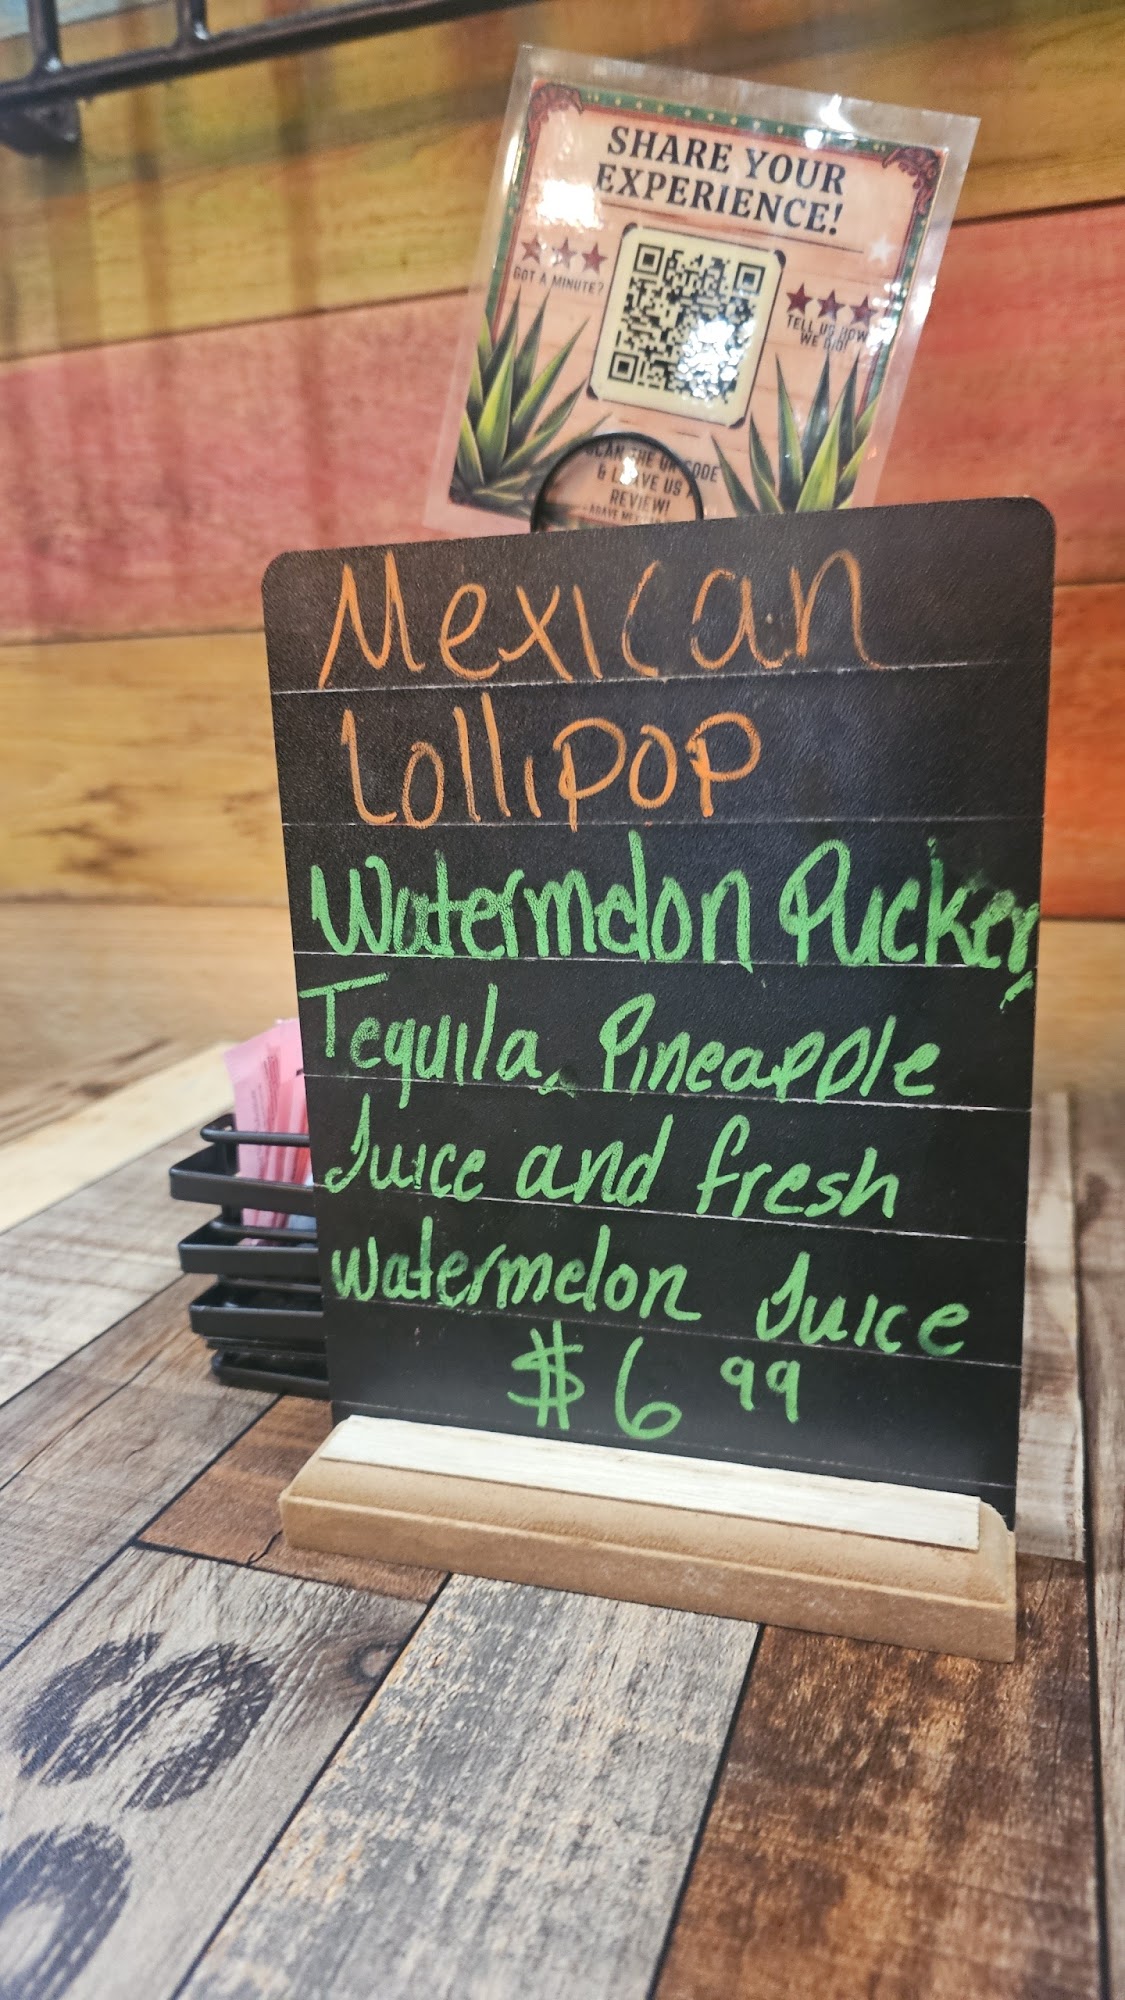 SHARE YOUR
EXPERIENCE!
GOT A MINUTE?
TELL US HOW
WE DID!
SCAN THE QR CODE
& LEAVE US A
REVIEW!
Mexican
Lollipop
Watermelon Pucker,
Tequila, Pineapple
Juice and fresh
watermelon Juice
$6 99